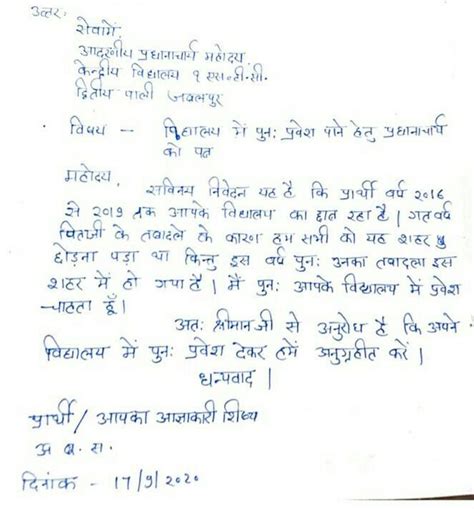 उत्तर:
सेवामें,
आदरणीय प्रधानाचार्य महोदय,
केन्द्रीय विद्यालय १ एस॰टी॰सी॰
द्वितीय पाली जबलपुर
विषय - विद्यालय में पुनः प्रवेश पाने हेतु प्रधानाचार्य
को पत्र
महोदय,
सविनय निवेदन यह है कि प्रार्थी वर्ष 2016
से 2019 तक आपके विद्यालय का छात्र रहा है | गतवर्ष
पिताजी के तबादले के कारण हम सभी को यह शहर
छोड़ना पड़ा था किन्तु इस वर्ष पुनः उनका तबादला इस
शहर में हो गया है | मैं पुनः आपके विद्यालय में प्रवेश
चाहता हूँ |
अतः श्रीमानजी से अनुरोध है कि अपने
विद्यालय में पुनः प्रवेश देकर हमें अनुग्रहीत करें |
धन्यवाद |
प्रार्थी / आपका आज्ञाकारी शिष्य
अ ब. स.
दिनांक - 17/9/2020